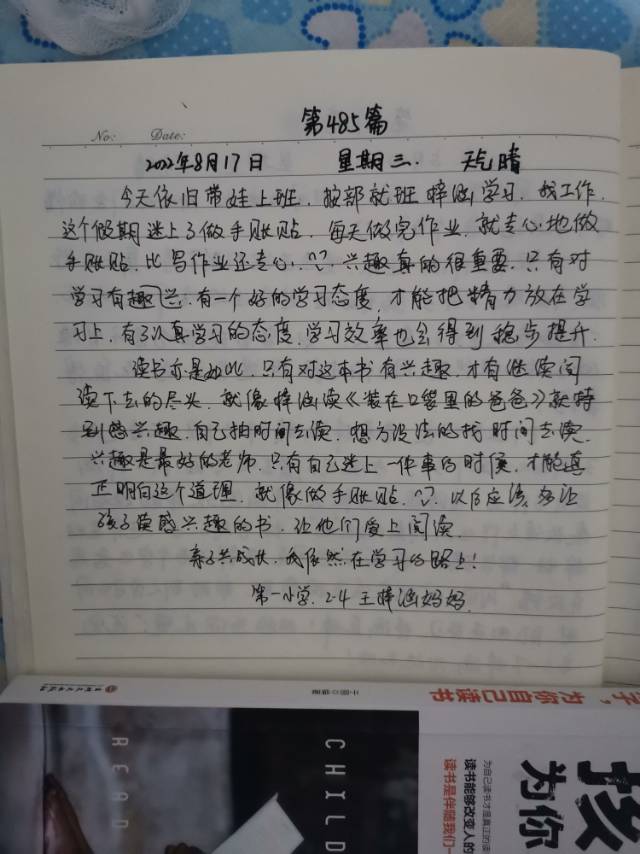 第485篇
No: Date:
2022年8月17日 星期三. 天气晴
今天依旧带娃上班,按部就班梓涵学习,我工作,
这个假期迷上了做手账贴,每天做完作业,就专心地做
手账贴,比写作业还专心,兴趣真的很重要,只有对
学习有趣兴,有一个好的学习态度,才能把精力放在学
习上,有了认真学习的态度,学习效率也会得到稳步提升.
读书亦是如此,只有对这本书有兴趣,才有继续阅
读下去的尽头,就像梓涵读《装在口袋里的爸爸》就特
别感兴趣,自己抽时间去读,想方设法的找时间去读,
兴趣是最好的老师,只有自己迷上一件事的时候,才能真
正明白这个道理,就像做手账贴,以后应该多让
孩子读感兴趣的书,让他们爱上阅读.
亲子共成长,我依然在学习的路上!
第一小学.2.4 王梓涵妈妈
子,为你自己读书
READ
CHILD
为自己读书才是真正的读
读书能够改变人的
读书是伴随我们一
孩
为你